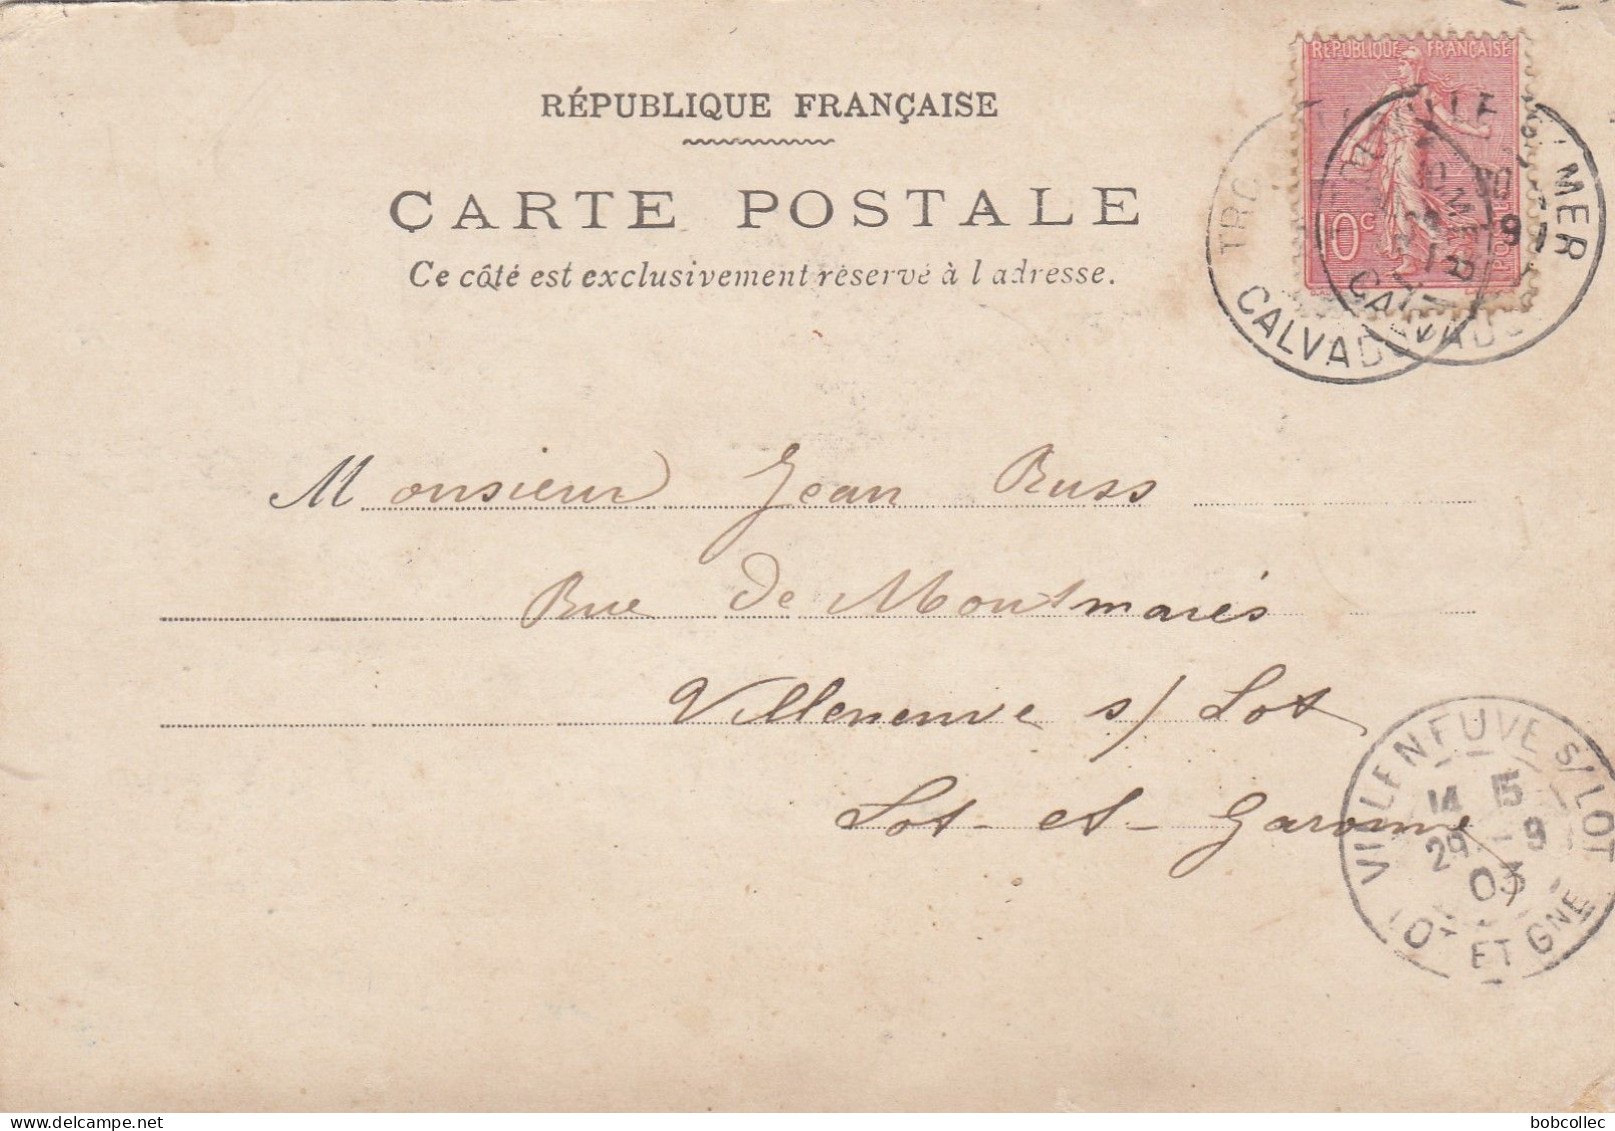 REPUBLIQUE FRANÇAISE
RÉPUBLIQUE FRANÇAISE
CARTE POSTALE
Ce côté est exclusivement réservé à l adresse.
10c
MER
CALVADOS
Monsieur Jean Russ
Rue de Montmarès
Villeneuve s/ Lot
Lot-et-Garonne
VILLENEUVE S/LOT
14 15
29 -9
03
LOT ET GNE
bobcollec